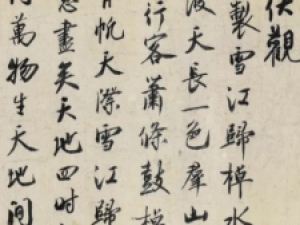 伏觀
製雪江歸棹水
波天長一色羣山
行客蕭條鼓棹
帆天際雪江歸
意盡矣天地四時
萬物生天地間